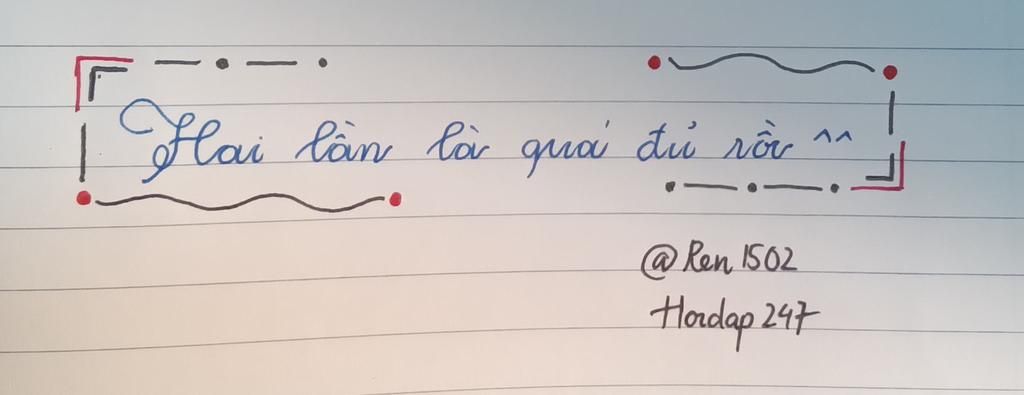 Hai lần là quá đủ rồi ^^
@Ren1502
Hoidap247